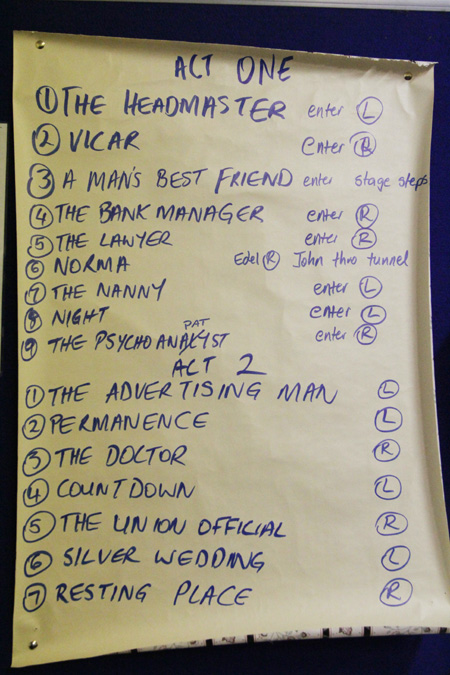 ACT ONE
① THE HEADMASTER enter Ⓛ
② VICAR enter Ⓡ
③ A MAN'S BEST FRIEND enter stage steps
④ THE BANK MANAGER enter Ⓡ
⑤ THE LAWYER enter Ⓡ
⑥ NORMA Edel Ⓡ John thro tunnel
⑦ THE NANNY enter Ⓛ
⑧ NIGHT enter Ⓛ
PAT
⑨ THE PSYCHOANALYST enter Ⓡ
ACT 2
① THE ADVERTISING MAN Ⓛ
② PERMANENCE Ⓛ
③ THE DOCTOR Ⓡ
④ COUNTDOWN Ⓛ
⑤ THE UNION OFFICIAL Ⓡ
⑥ SILVER WEDDING Ⓛ
⑦ RESTING PLACE Ⓡ